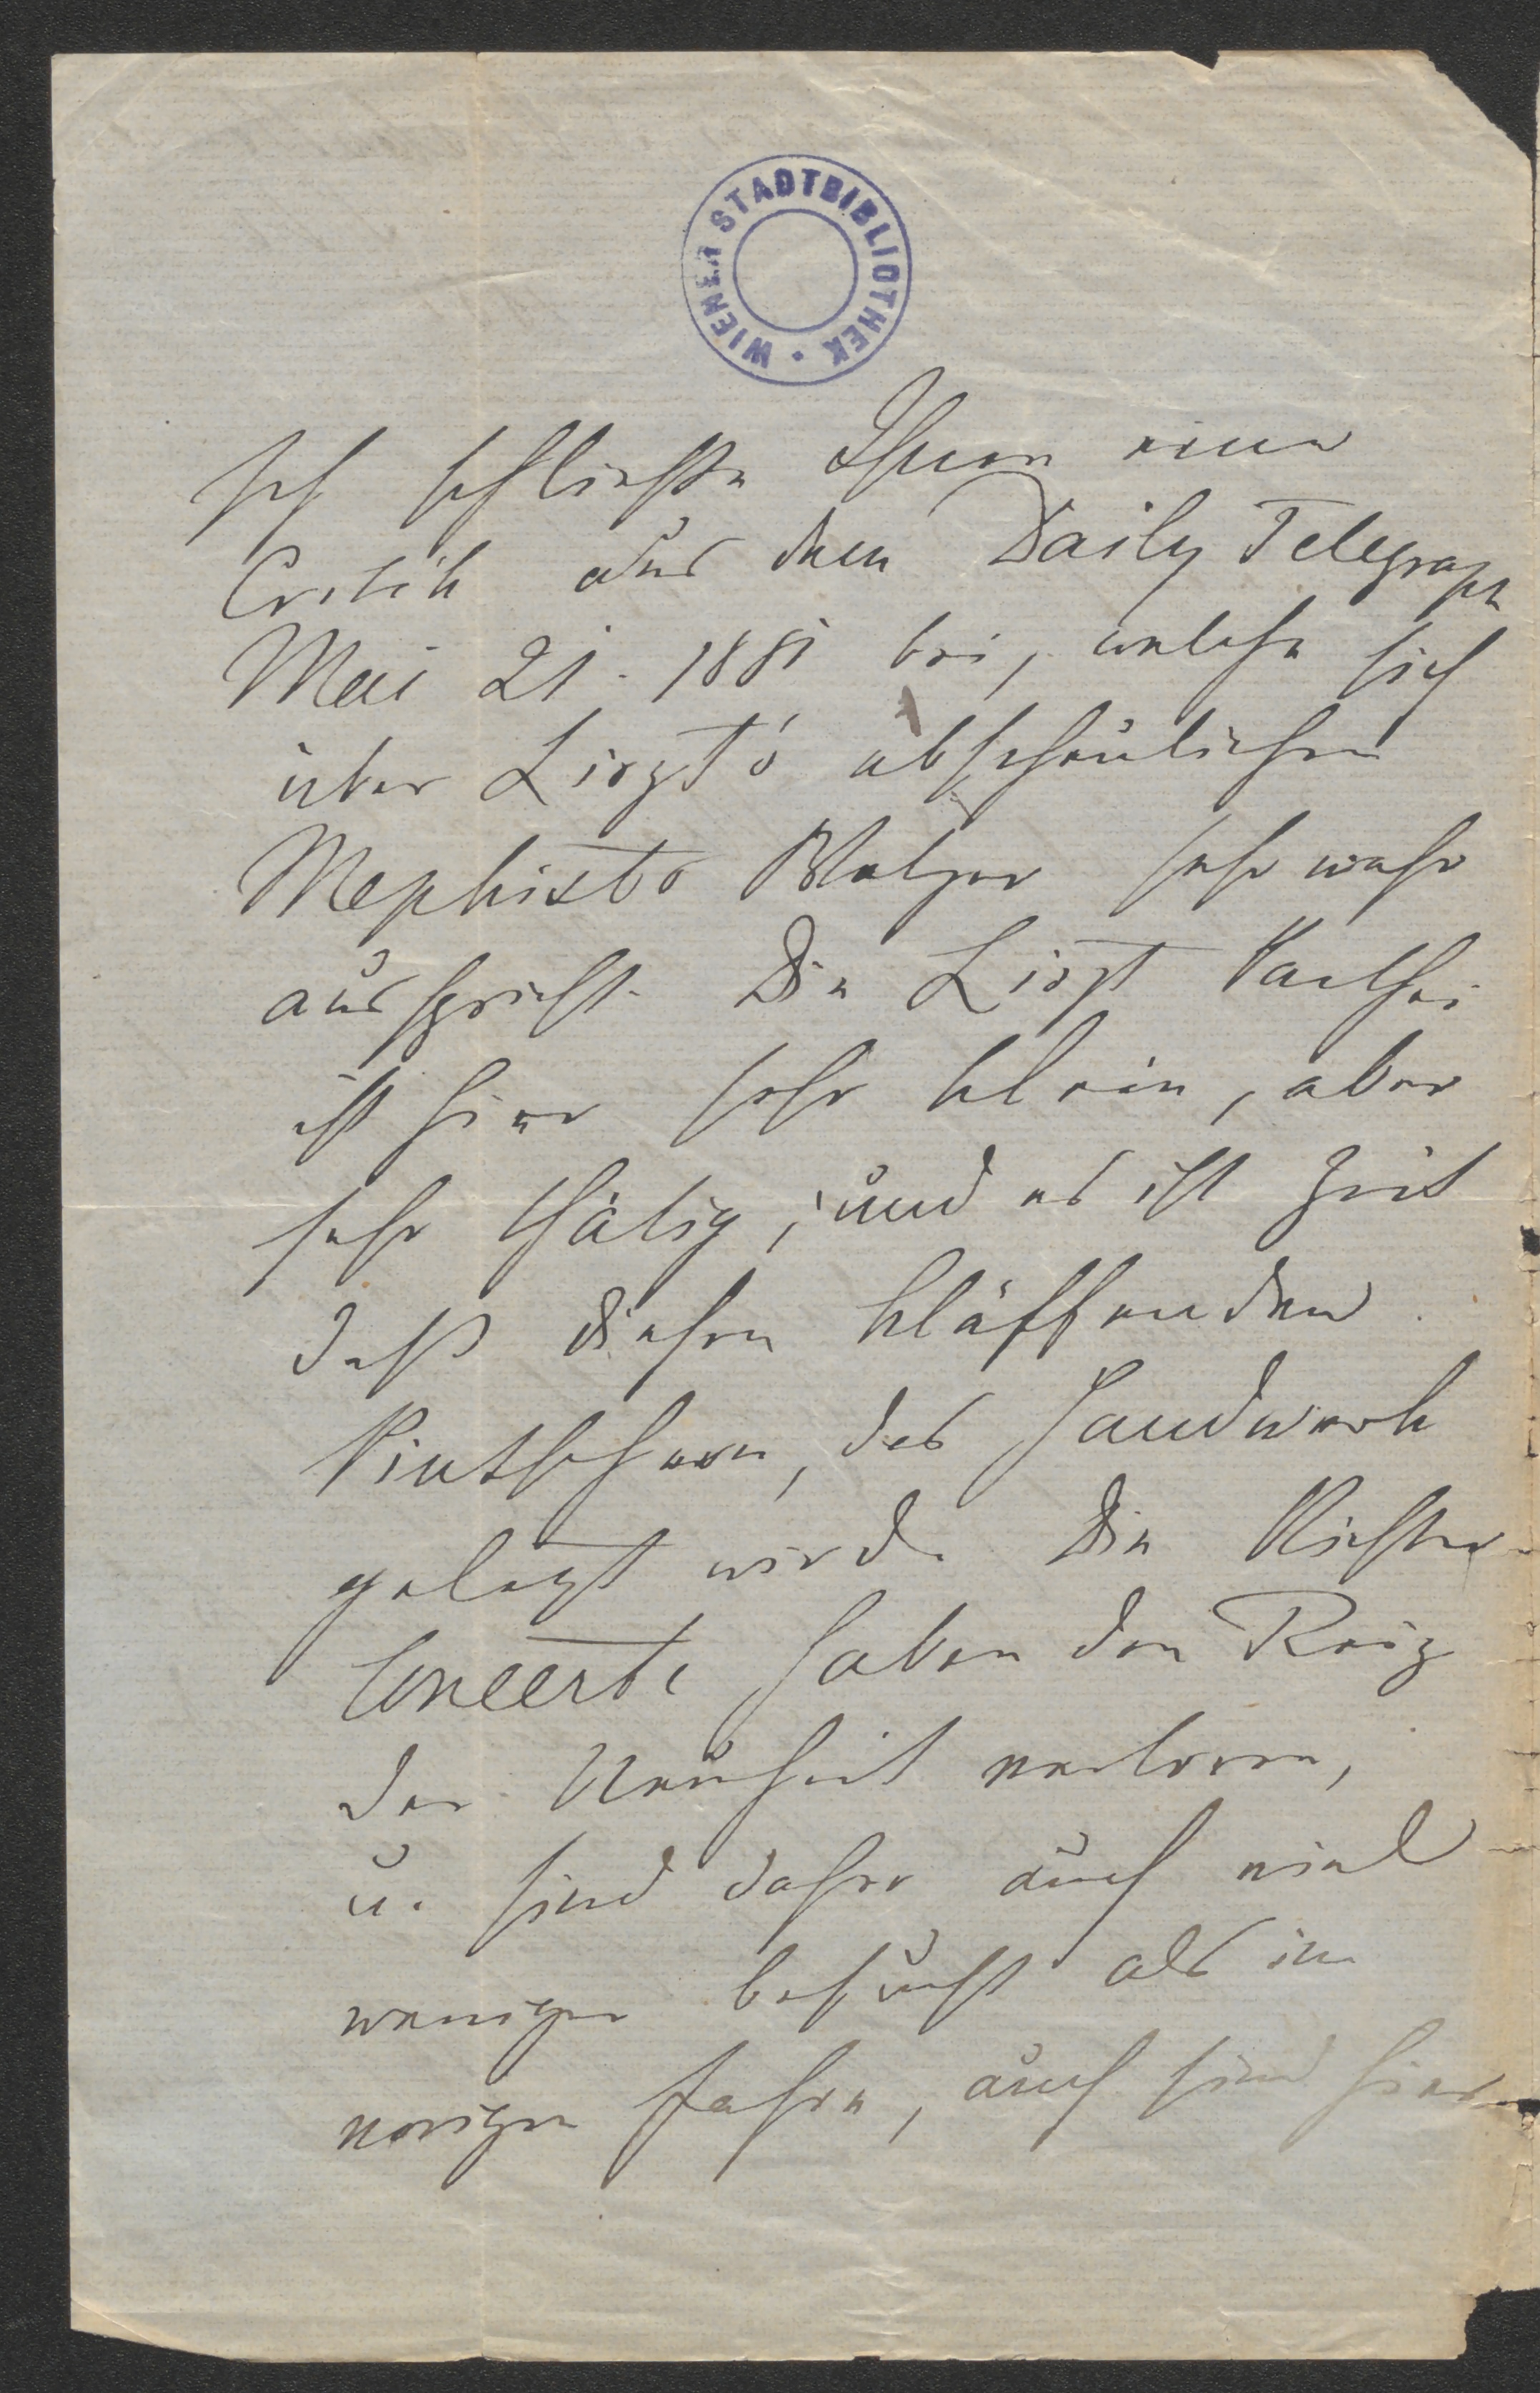 WIENER STADTBIBLIOTHEK
Ich schließe Ihnen eine
Critik aus dem Daily Telegraph
Mai 21. 1881 bei, welche sich
über Liszt's abscheulichen
Mephisto Walzer sehr wahr
ausspricht. Die Liszt Parthei
ist hier sehr klein, aber
sehr thätig, und es ist Zeit
daß diesen kläffenden
Pintschern, das Handwerk
gelegt wird. Die Richter
Concerte haben den Reiz
der Neuheit verloren,
u. sind daher auch viel
weniger besucht als im
vorigen Jahre, auch sind hier